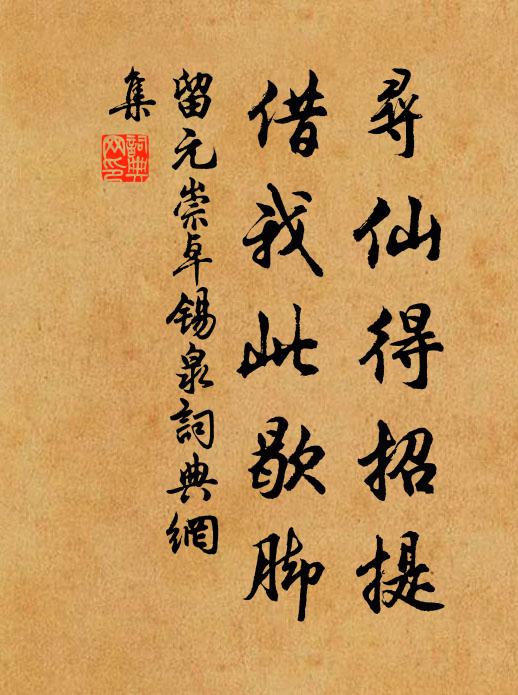 尋仙得招提
借我此歇脚
留元崇卓锡泉詞典網
集
詞典
网印